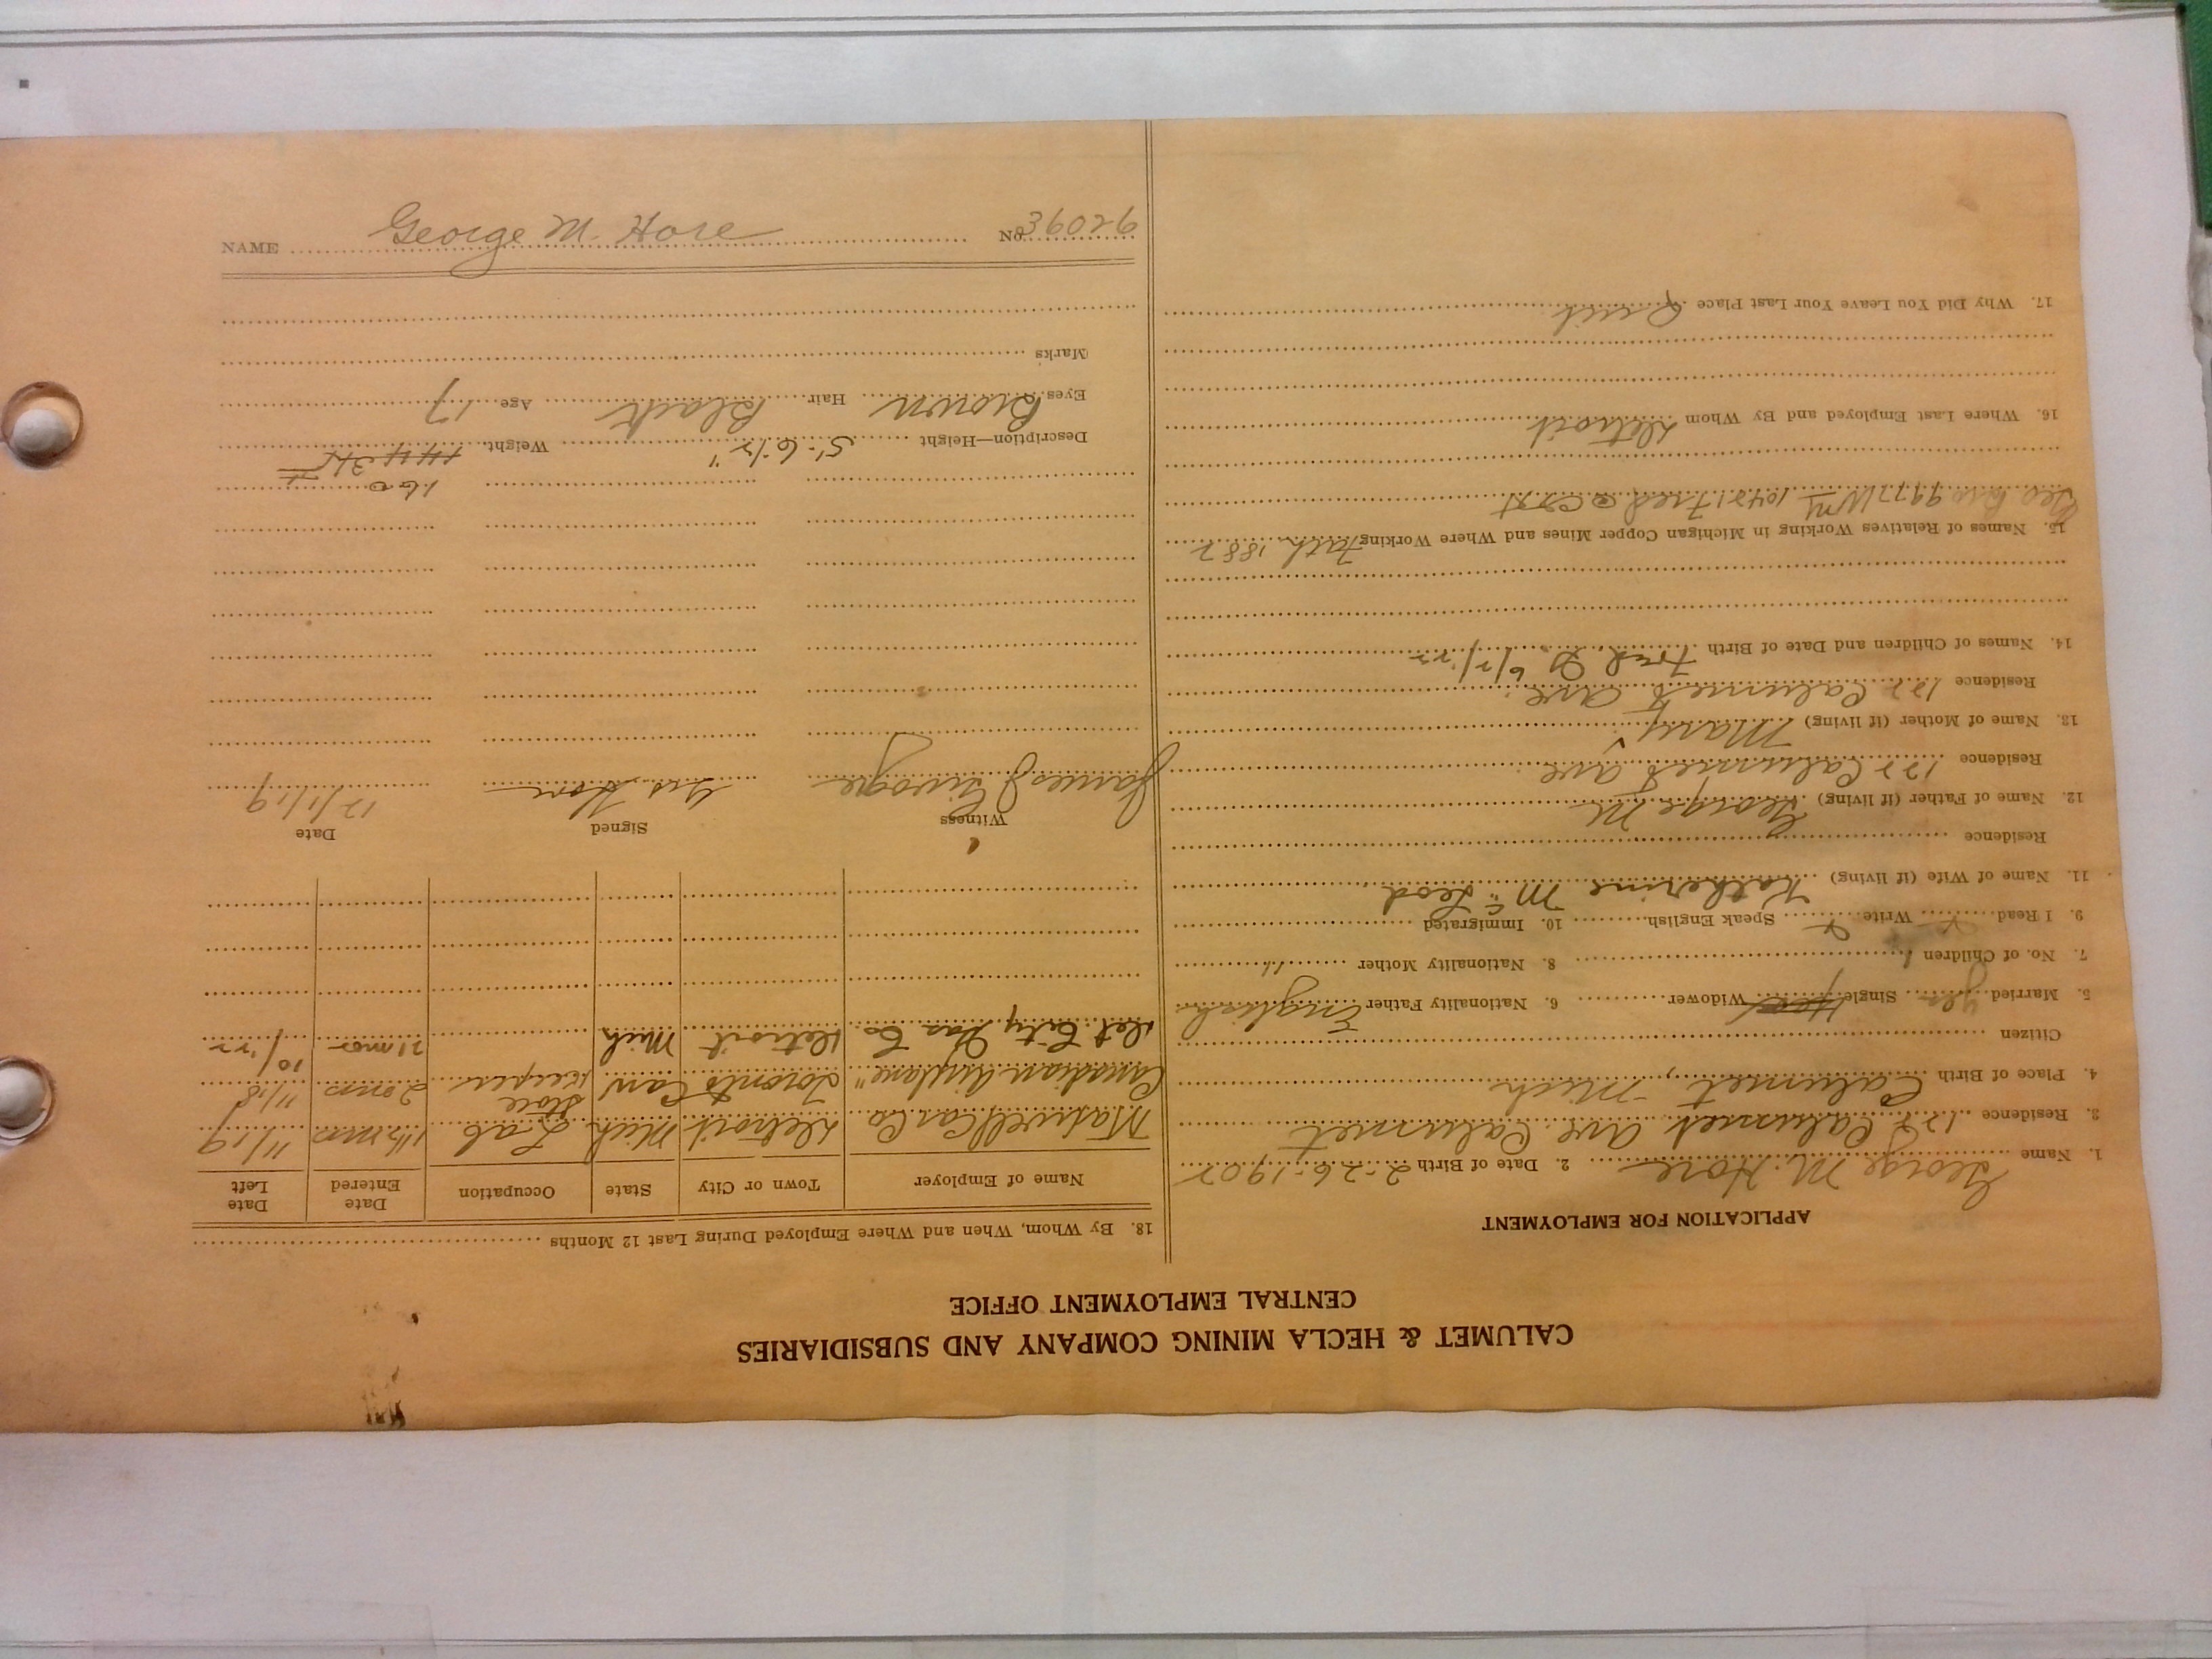 CALUMET & HECLA MINING COMPANY AND SUBSIDIARIES
CENTRAL EMPLOYMENT OFFICE
APPLICATION FOR EMPLOYMENT
1. Name George M. Hore 2. Date of Birth 2-26-1902
3. Residence 122 Calumet Ave. Calumet
4. Place of Birth Calumet, Mich
Citizen
5. Married yes Single Widower 6. Nationality Father English
7. No. of Children 1 8. Nationality Mother "
9. I Read Write Speak English 10. Immigrated
11. Name of Wife (if living) Katherine McLeod
Residence
12. Name of Father (if living) George M
Residence 122 Calumet Ave
13. Name of Mother (if living) Mary
Residence 122 Calumet Ave
14. Names of Children and Date of Birth Fred 6/2/22
15. Names of Relatives Working in Michigan Copper Mines and Where Working Fath 1882
Geo Bro 9977 Wm 10421 Fred @
16. Where Last Employed and By Whom Detroit
17. Why Did You Leave Your Last Place Quit
18. By Whom, When and Where Employed During Last 12 Months
Name of Employer Town or City State Occupation Date Entered Date Left
Maxwell Car Co Detroit Mich Lab 1 1/2 mos 11/19
Canadian Airplane " Toronto Can Store Keeper 2 mos 11/18
Det. City Gas Co Detroit Mich 21 mos 10/'22
Witness Signed Date
James J Geo Hore 12/1/19
160
Description—Height 5'-6 1/2" Weight 144
Eyes Brown Hair Black Age 17
Marks
NAME George M. Hore No 36026